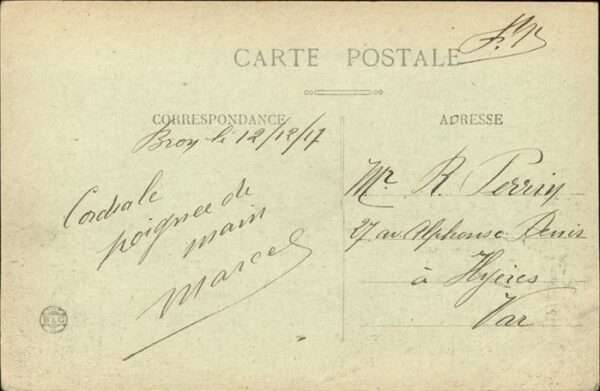 F. M
CARTE POSTALE
CORRESPONDANCE
Bron le 12/12/17
Cordiale
poignée de
main
Marcel
ADRESSE
Mr R. Perrin
27 av. Alphonse Denis
à Hyères
Var